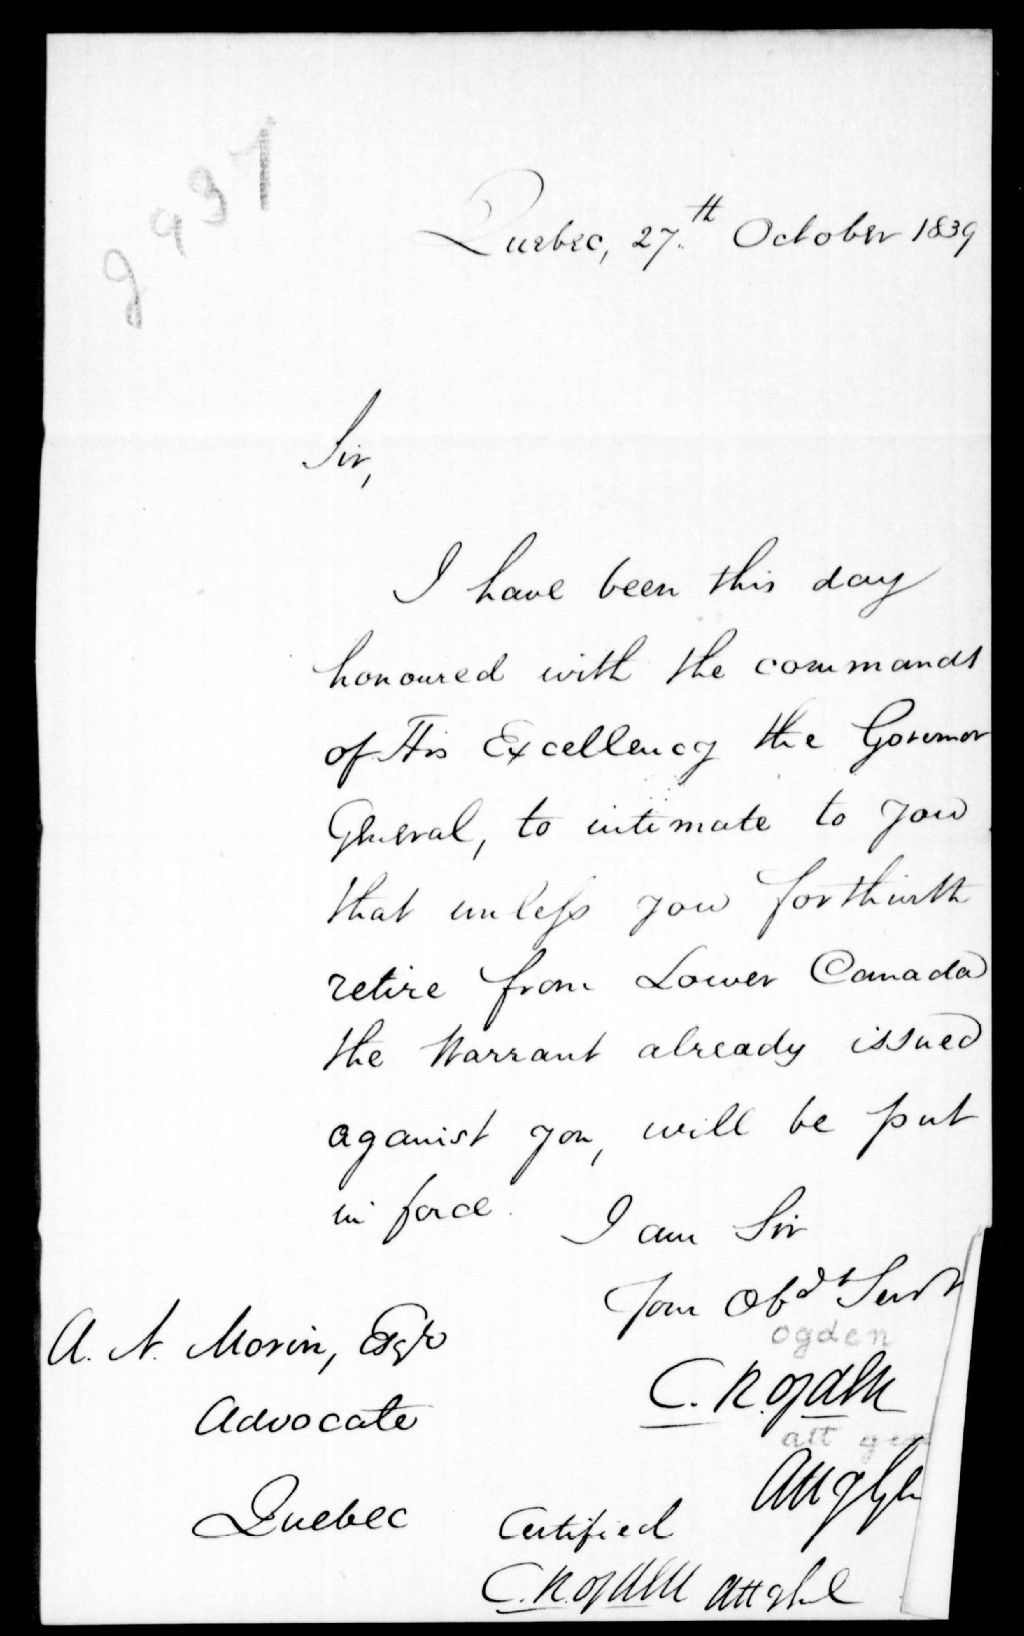 2937
Quebec, 27.th October 1839
Sir,
I have been this day
honoured with the commands
of His Excellency the Governor
General, to intimate to you
that unless you forthwith
retire from Lower Canada
the Warrant already issued
against you, will be put
in force.
I am Sir
Your Obdt Servt
ogden
C. R. Ogden
att gen
Att Gen
A. N. Morin, Esqr
Advocate
Quebec
Certified
C. R. Ogden Att Genl